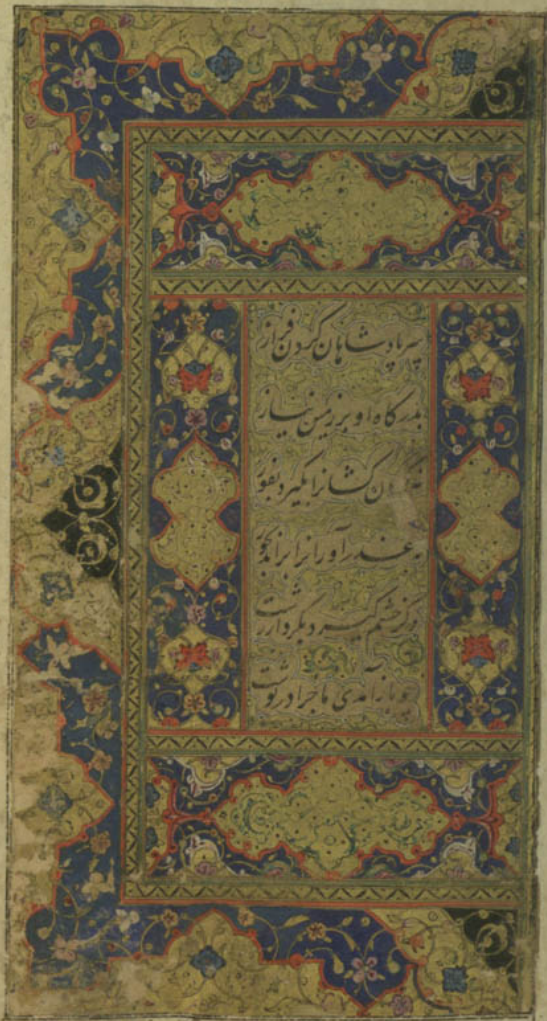 سر پادشاهان گردن فراز
بدرگاه او بر زمین نیاز
نه گردن کشانرا بگیرد بفور
نه عذر آورانرا براند بجور
وگر خشم گیرد بکردار زشت
چو باز آمدی ماجرا در نوشت